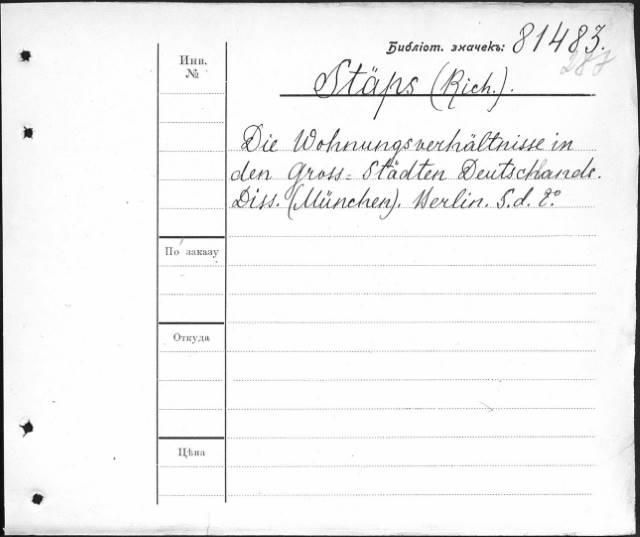 Библіот. значекъ: 81483.
287
Инв.
№
Stäps (Rich.).
Die Wohnungsverhältnisse in
den Gross-Städten Deutschlands.
Diss. (München). Berlin. S.d. 8°
По заказу
Откуда
Цѣна